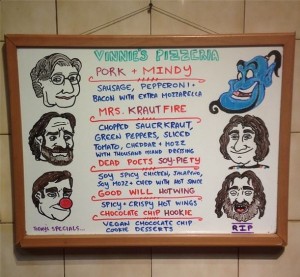 VINNIE'S PIZZERIA
PORK + MINDY
SAUSAGE, PEPPERONI +
BACON WITH EXTRA MOZZARELLA
MRS. KRAUTFIRE
CHOPPED SAUERKRAUT,
GREEN PEPPERS, SLICED
TOMATO, CHEDDAR + MOZZ
WITH THOUSAND ISLAND DRESSING
DEAD POETS SOY-PIETY
SOY SPICY CHICKEN, JALAPENO,
SOY MOZZ + CHED WITH HOT SAUCE
GOOD WILL HOTWING
SPICY + CRISPY HOT WINGS
CHOCOLATE CHIP HOOKIE
VEGAN CHOCOLATE CHIP
COOKIE DESSERTS
TODAYS SPECIALS...
R.I.P